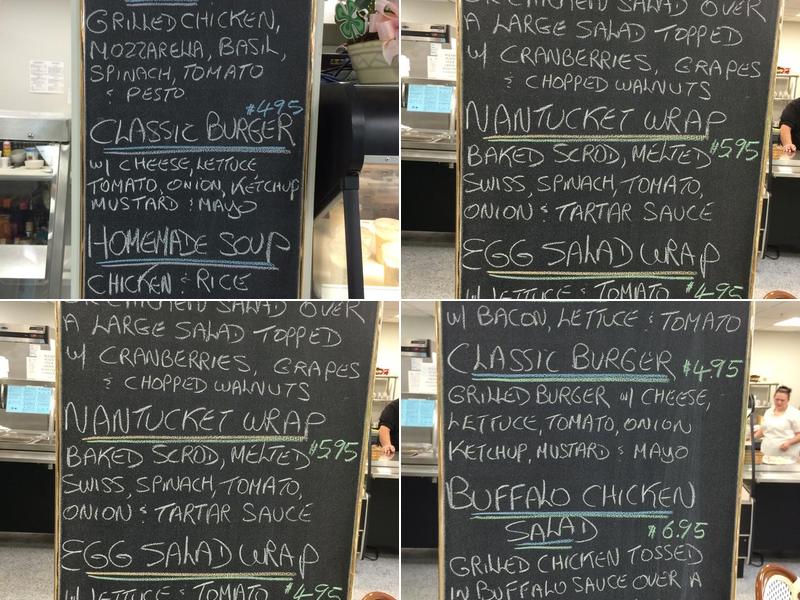 GRILLED CHICKEN,
MOZZARELLA, BASIL,
SPINACH, TOMATO
& PESTO
$4.95
CLASSIC BURGER
W/ CHEESE, LETTUCE
TOMATO, ONION, KETCHUP
MUSTARD & MAYO
HOMEMADE SOUP
CHICKEN & RICE
OR CHICKEN SALAD OVER
A LARGE SALAD TOPPED
W/ CRANBERRIES, GRAPES
& CHOPPED WALNUTS
NANTUCKET WRAP
BAKED SCROD, MELTED $5.95
SWISS, SPINACH, TOMATO,
ONION & TARTAR SAUCE
EGG SALAD WRAP
W/ LETTUCE & TOMATO $4.95
OR CHICKEN SALAD OVER
A LARGE SALAD TOPPED
W/ CRANBERRIES, GRAPES
& CHOPPED WALNUTS
NANTUCKET WRAP
BAKED SCROD, MELTED $5.95
SWISS, SPINACH, TOMATO,
ONION & TARTAR SAUCE
EGG SALAD WRAP
W/ LETTUCE & TOMATO $4.95
W/ BACON, LETTUCE & TOMATO
CLASSIC BURGER $4.95
GRILLED BURGER W/ CHEESE,
LETTUCE, TOMATO, ONION
KETCHUP, MUSTARD & MAYO
BUFFALO CHICKEN
SALAD $6.95
GRILLED CHICKEN TOSSED
IN BUFFALO SAUCE OVER A